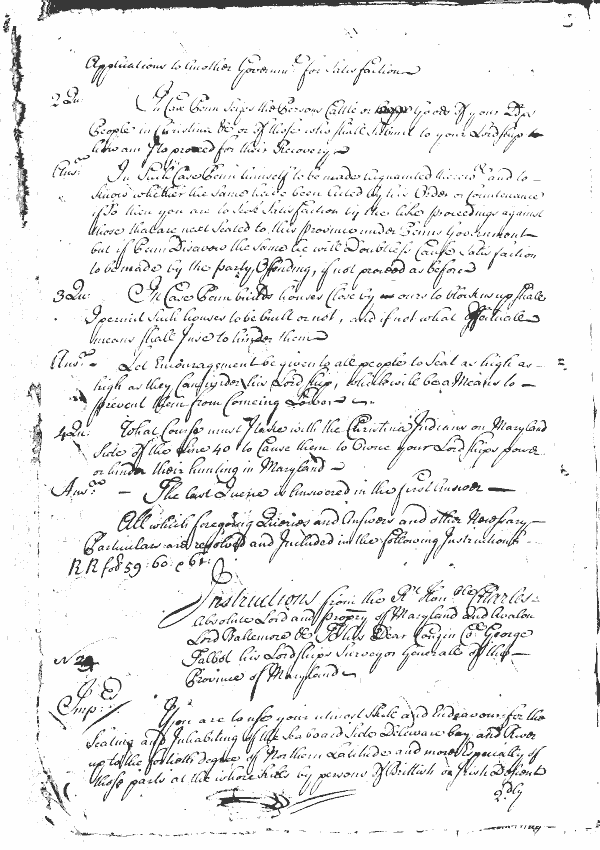 Applications to another Governm.t for Satisfaction
2 Qu: In Case Penn Seize the Persons Cattle or Goods of your
People in Christina &c or of those who shall submit to your Lordship
how am I to proceed for their Recovery
Ans.r In Such Case Penn himself to be made acquainted therew.th and to
know whether the Same have been acted by his Order or Countenance
if So then you are to Seek Satisfaction by the like proceedings against
those that are next Seated to this Province under Penns Government
but if Penn Disavow the Same he will Doubtless Cause Satisfaction
to be made by the party Offending, if not proceed as before
3 Qu: In Case Penn builds houses Close by ours to block us up shall
I permit Such houses to be built or not, and if not what Effectuale
means shall I use to hinder them
Ans.r Let Encouragement be given to all people to Seat as high as
high as they Can under his Lordship, which will be a Means to
prevent them from Comeing Lower
4 Qu: What Course must I take with the Christina Indians on Maryland
Side of the Line 40 to Cause them to Owne your Lordships power
or hinder their hunting in Maryland
Ans.r The last Querie is Answered in the first Answer
All which foregoing Queries and Answers and other Necessary
Particulars are resolved and Included in the following Instructions
R R fo: 59: 60: & 61:
Instructions from the R.t Hon.ble Charles
Absolute Lord and Prop.ry of Maryland and Avalon
Lord Baltemore &c To his Dear Cozin Co.l George
Talbot his Lordships Surveyor Generale of the
Province of Maryland
N 24
Imp: You are to use your utmost Skill and Endeavour for the
Seating and Inhabiting of the Seaboard Side Delaware bay and River
up to the fortieth degree of Northern Latitude and more Especially of
those parts at the by persons of Brittish or Irish Descent
2.dly